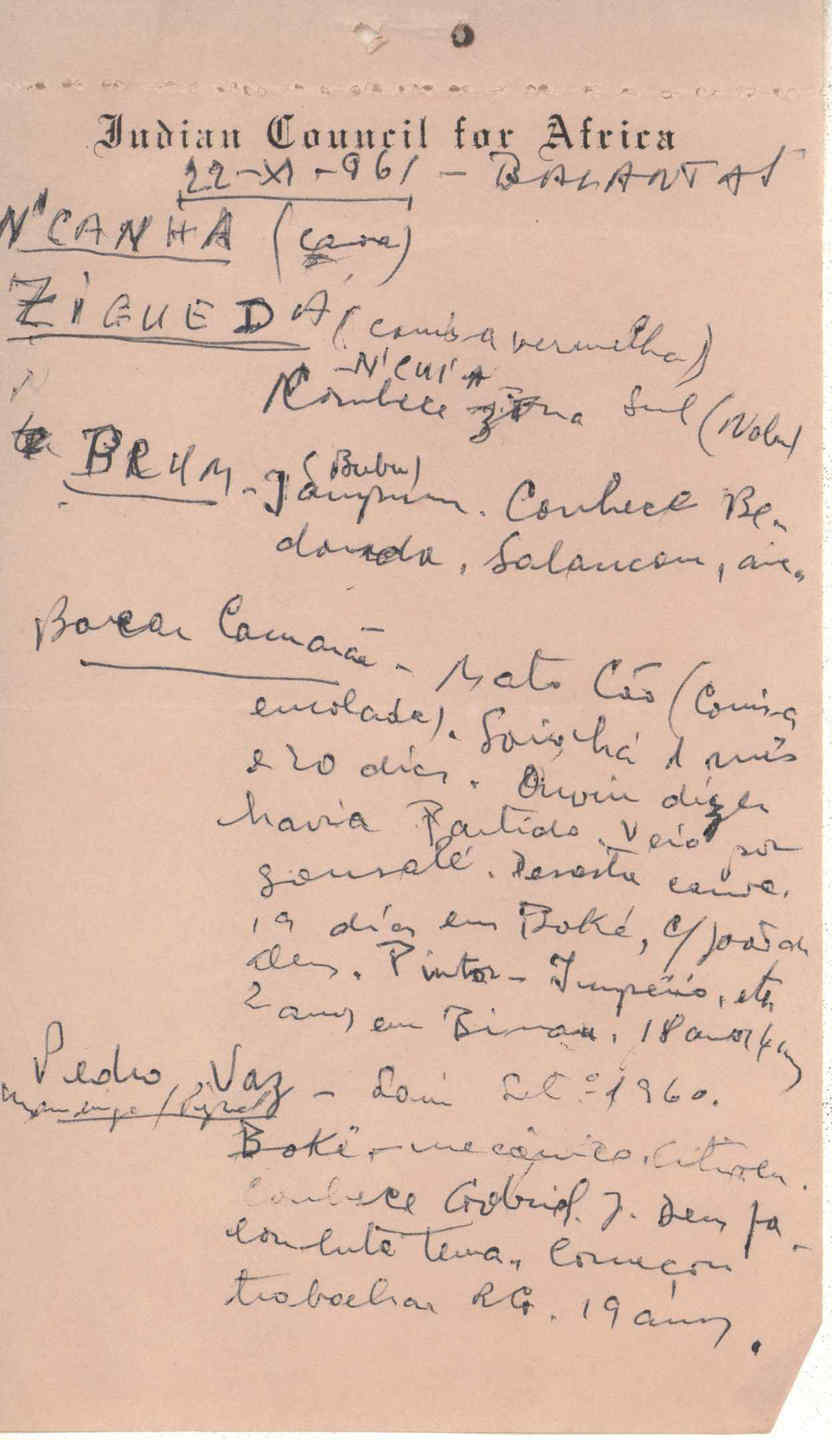 Indian Council for Africa
22-XI-961 - BALANTAS
N'CANHA (cana)
ZIGUEDA (camisa vermelha)
-N'CUIA
Conhece zona Sul (Nalu)
BRUM - (Bubu)
Conhece Be-
danda, Salancau,
Bocar Camará - Mato Cão (Camisa
enrolada). Saiu há 1 mês
e 20 días. Ouviu dizer
havia Partido. Veio por
Sansalé. Desastre canoa.
19 días em Boké, c/ João de
Deus. Pintor - Império, etc.
2 anos em Bissau. 18 anos
Pedro Vaz - Saiu Set.º 1960.
Boké - mecânico. Citroen.
Conhece Gabriel. J. Deus fa-
lou luta terra. Começou
trabalhar RG. 19 anos.